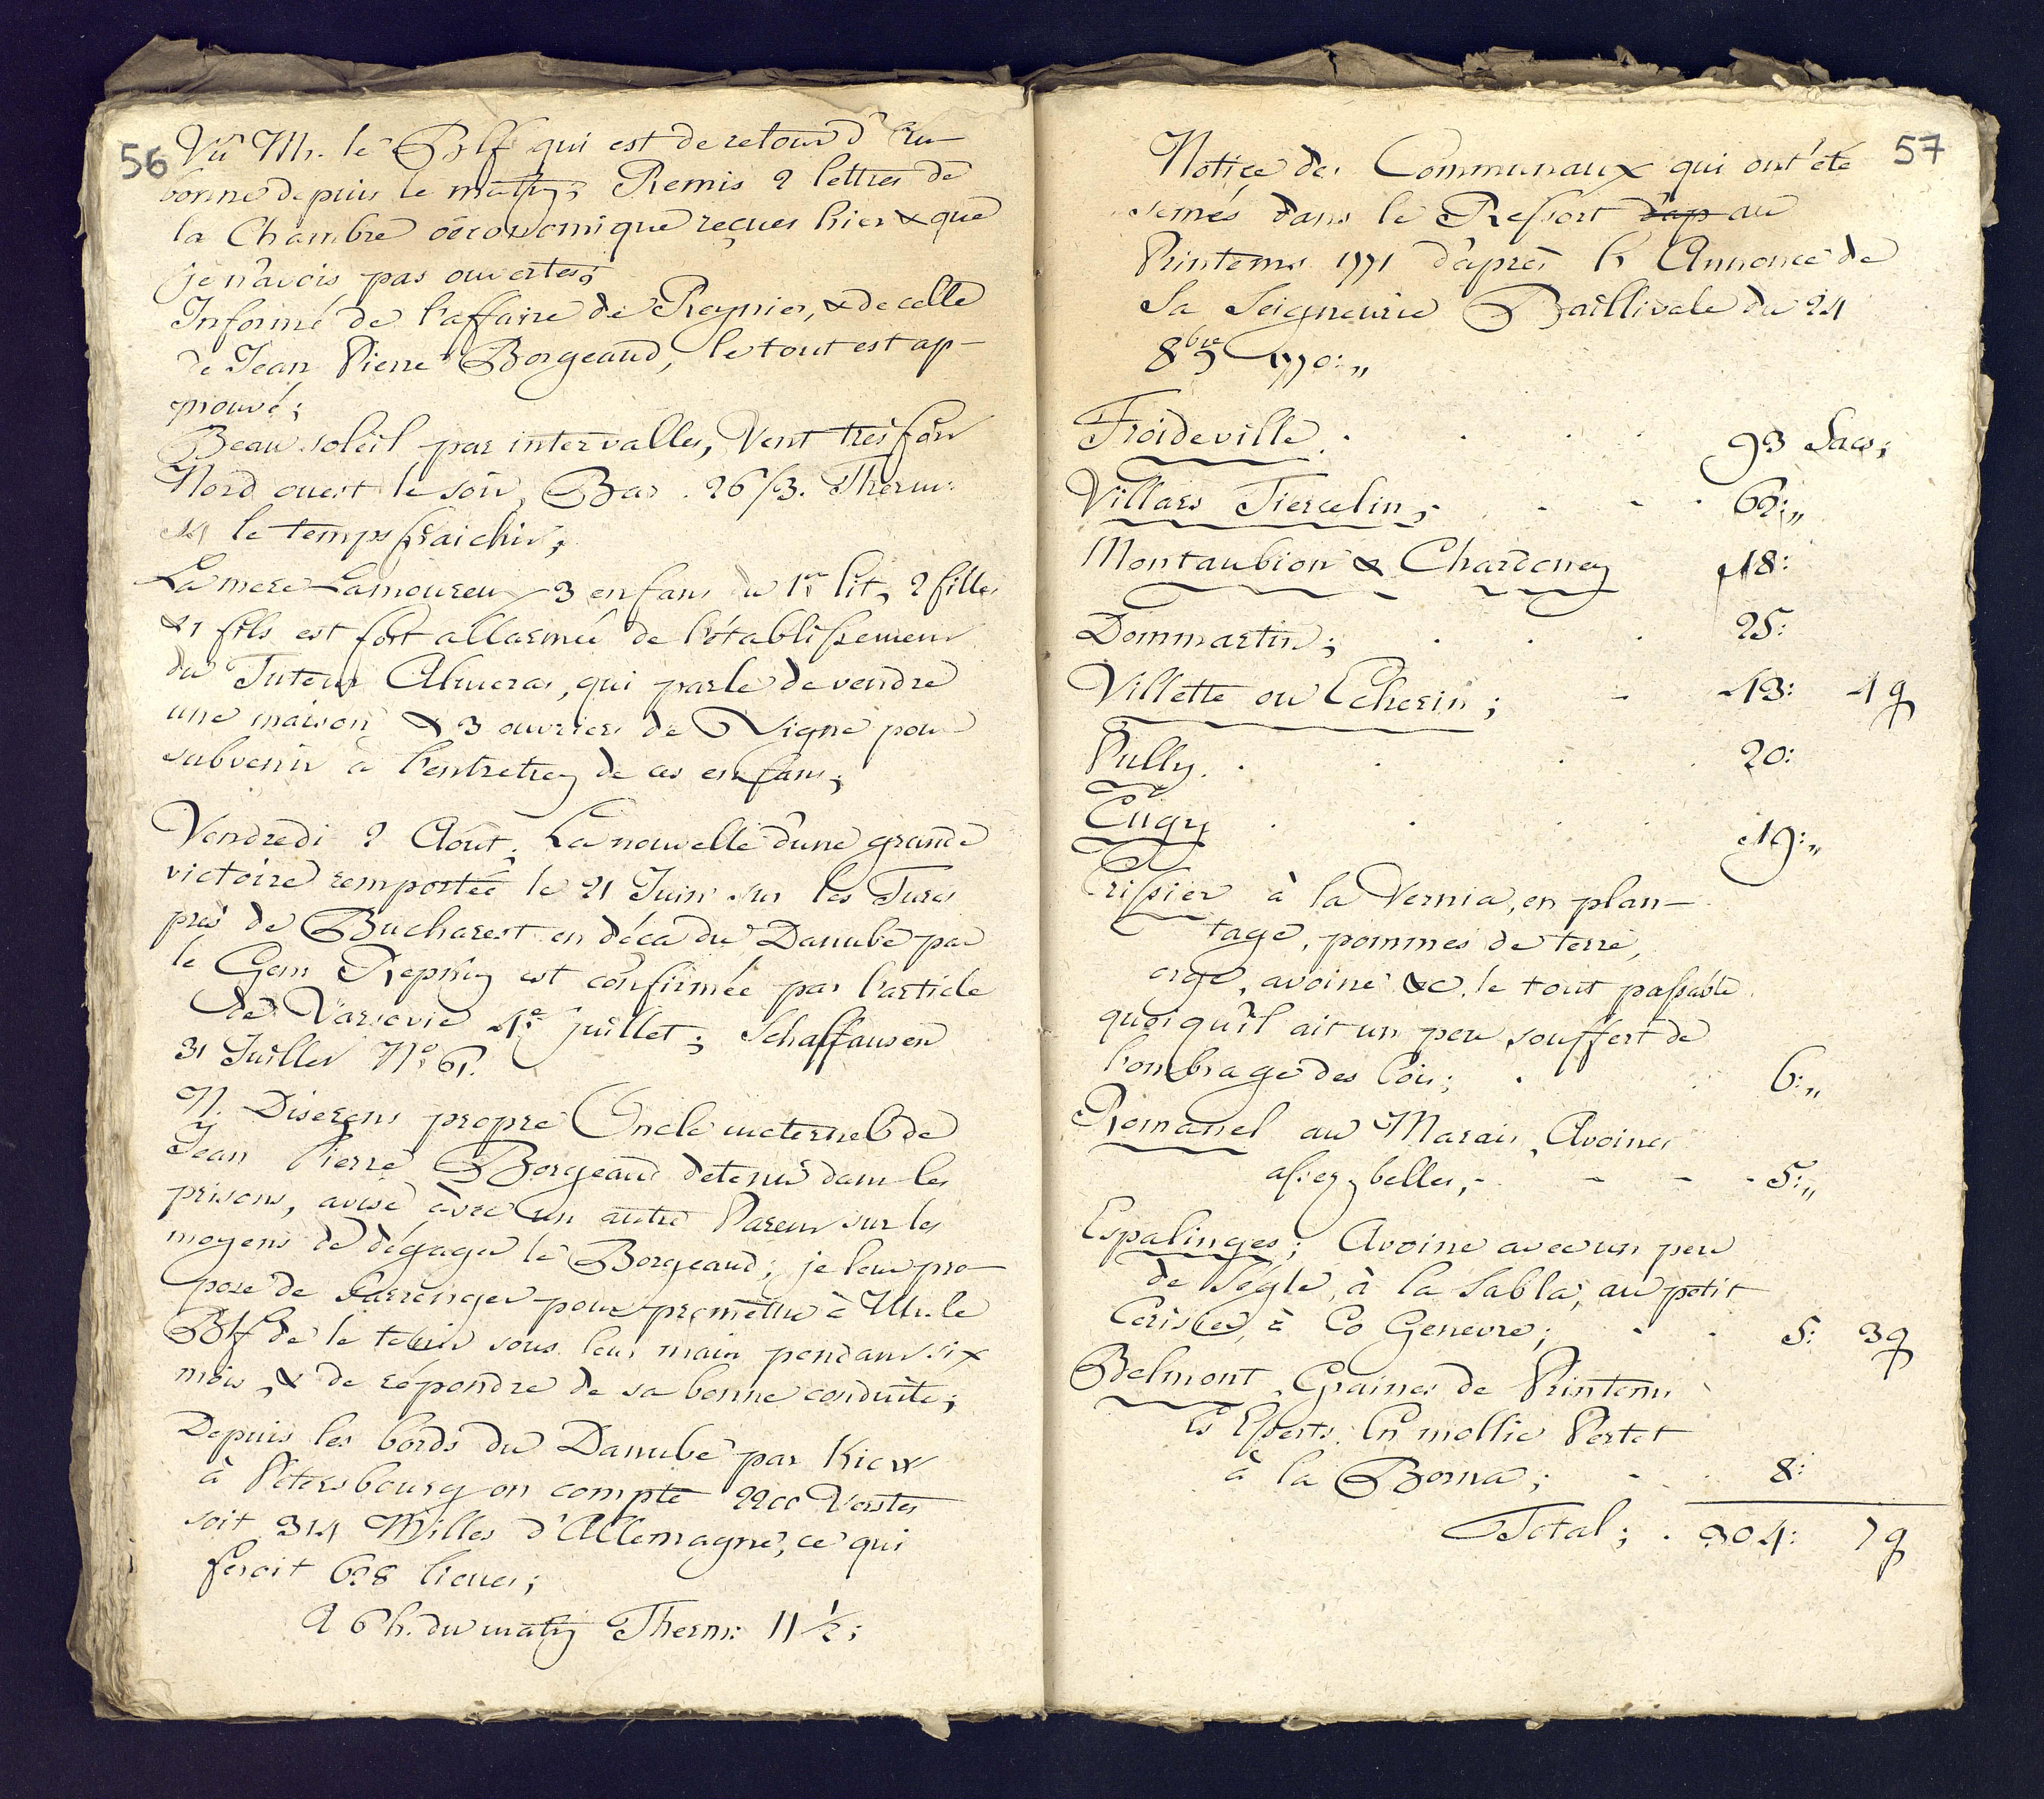 56
Vû Mr. le Blf qui est de retour d'Au-
bonne depuis le matin; Remis 2 lettres de
la Chambre oéconomique reçues hier & que
je n'avois pas ouvertes;
Informé de l'affaire de Reynier, & de celle
de Jean Pierre Borgeaud, le tout est ap-
prouvé;
Beau soleil par intervalles, Vent très fort
Nord ouest le soir, Bar. 26/3. Therm:
14 le temps fraichit;
La mere Lamoureux 3 enfans du 1er lit, 2 filles
& 1 fils est fort allarmée de l'établissement
du Tuteur Almeras, qui parle de vendre
une maison & 3 ouvriers de Vigne pour
subvenir à l'entretien de ces enfans;
Vendredi 2 Aout. La nouvelle d'une grande
victoire remportée le 21 Juin sur les Turcs
près de Bucharest en déca du Danube par
le Gen Repnin est confirmée par l'article
de Varsovie 4e juillet; Schaffausen
31 Juillet No 61.
N. Diserens propre Oncle maternel de
Jean Pierre Borgeaud detenu dans les
prisons, avise avec un autre Parent sur les
moyens de dégager le Borgeaud; je leur pro-
pose de s'arrenger pour promettre à Mr. le
Blf de le tenir sous leur main pendant six
mois, & de répondre de sa bonne conduite;
Depuis les bords du Danube par Kiow
à Petersbourg on compte 2200 Verstes
soit 314 Milles d'Allemagne, ce qui
feroit 628 lieues;
A 6 h. du matin Therm: 11 1/2;
57
Notice des Communaux qui ont été
semés dans le Ressort d'ap au
Printems 1771 d'après l'Annonce de
Sa Seigneurie Baillivale du 24
8bre 1770:,,
Froideville. 93 Sacs;
Villars Tiercelin; 62:,,
Montaubion & Chardoney 48:
Dommartin; 25:
Villette ou Echerin; 13: 4 q
Pully. 20:
Cugy 19:,,
Crissier à la Vernia, en plan-
tage, pommes de terre,
orge, avoine &c. le tout passable
quoiqu'il ait un peu souffert de
l'ombrage des bois; 6:,,
Romanel au Marais, Avoines
assez belles, 5:,,
Espalinges; Avoine avec un peu
de Ségle, à la Sabla, au petit
Cerisier, à Co Genevre; 5: 3q
Belmont, Graines de Printems
Es Esserts. En mollie Pertet
à la Borna; 8:
Total; 304: 7q